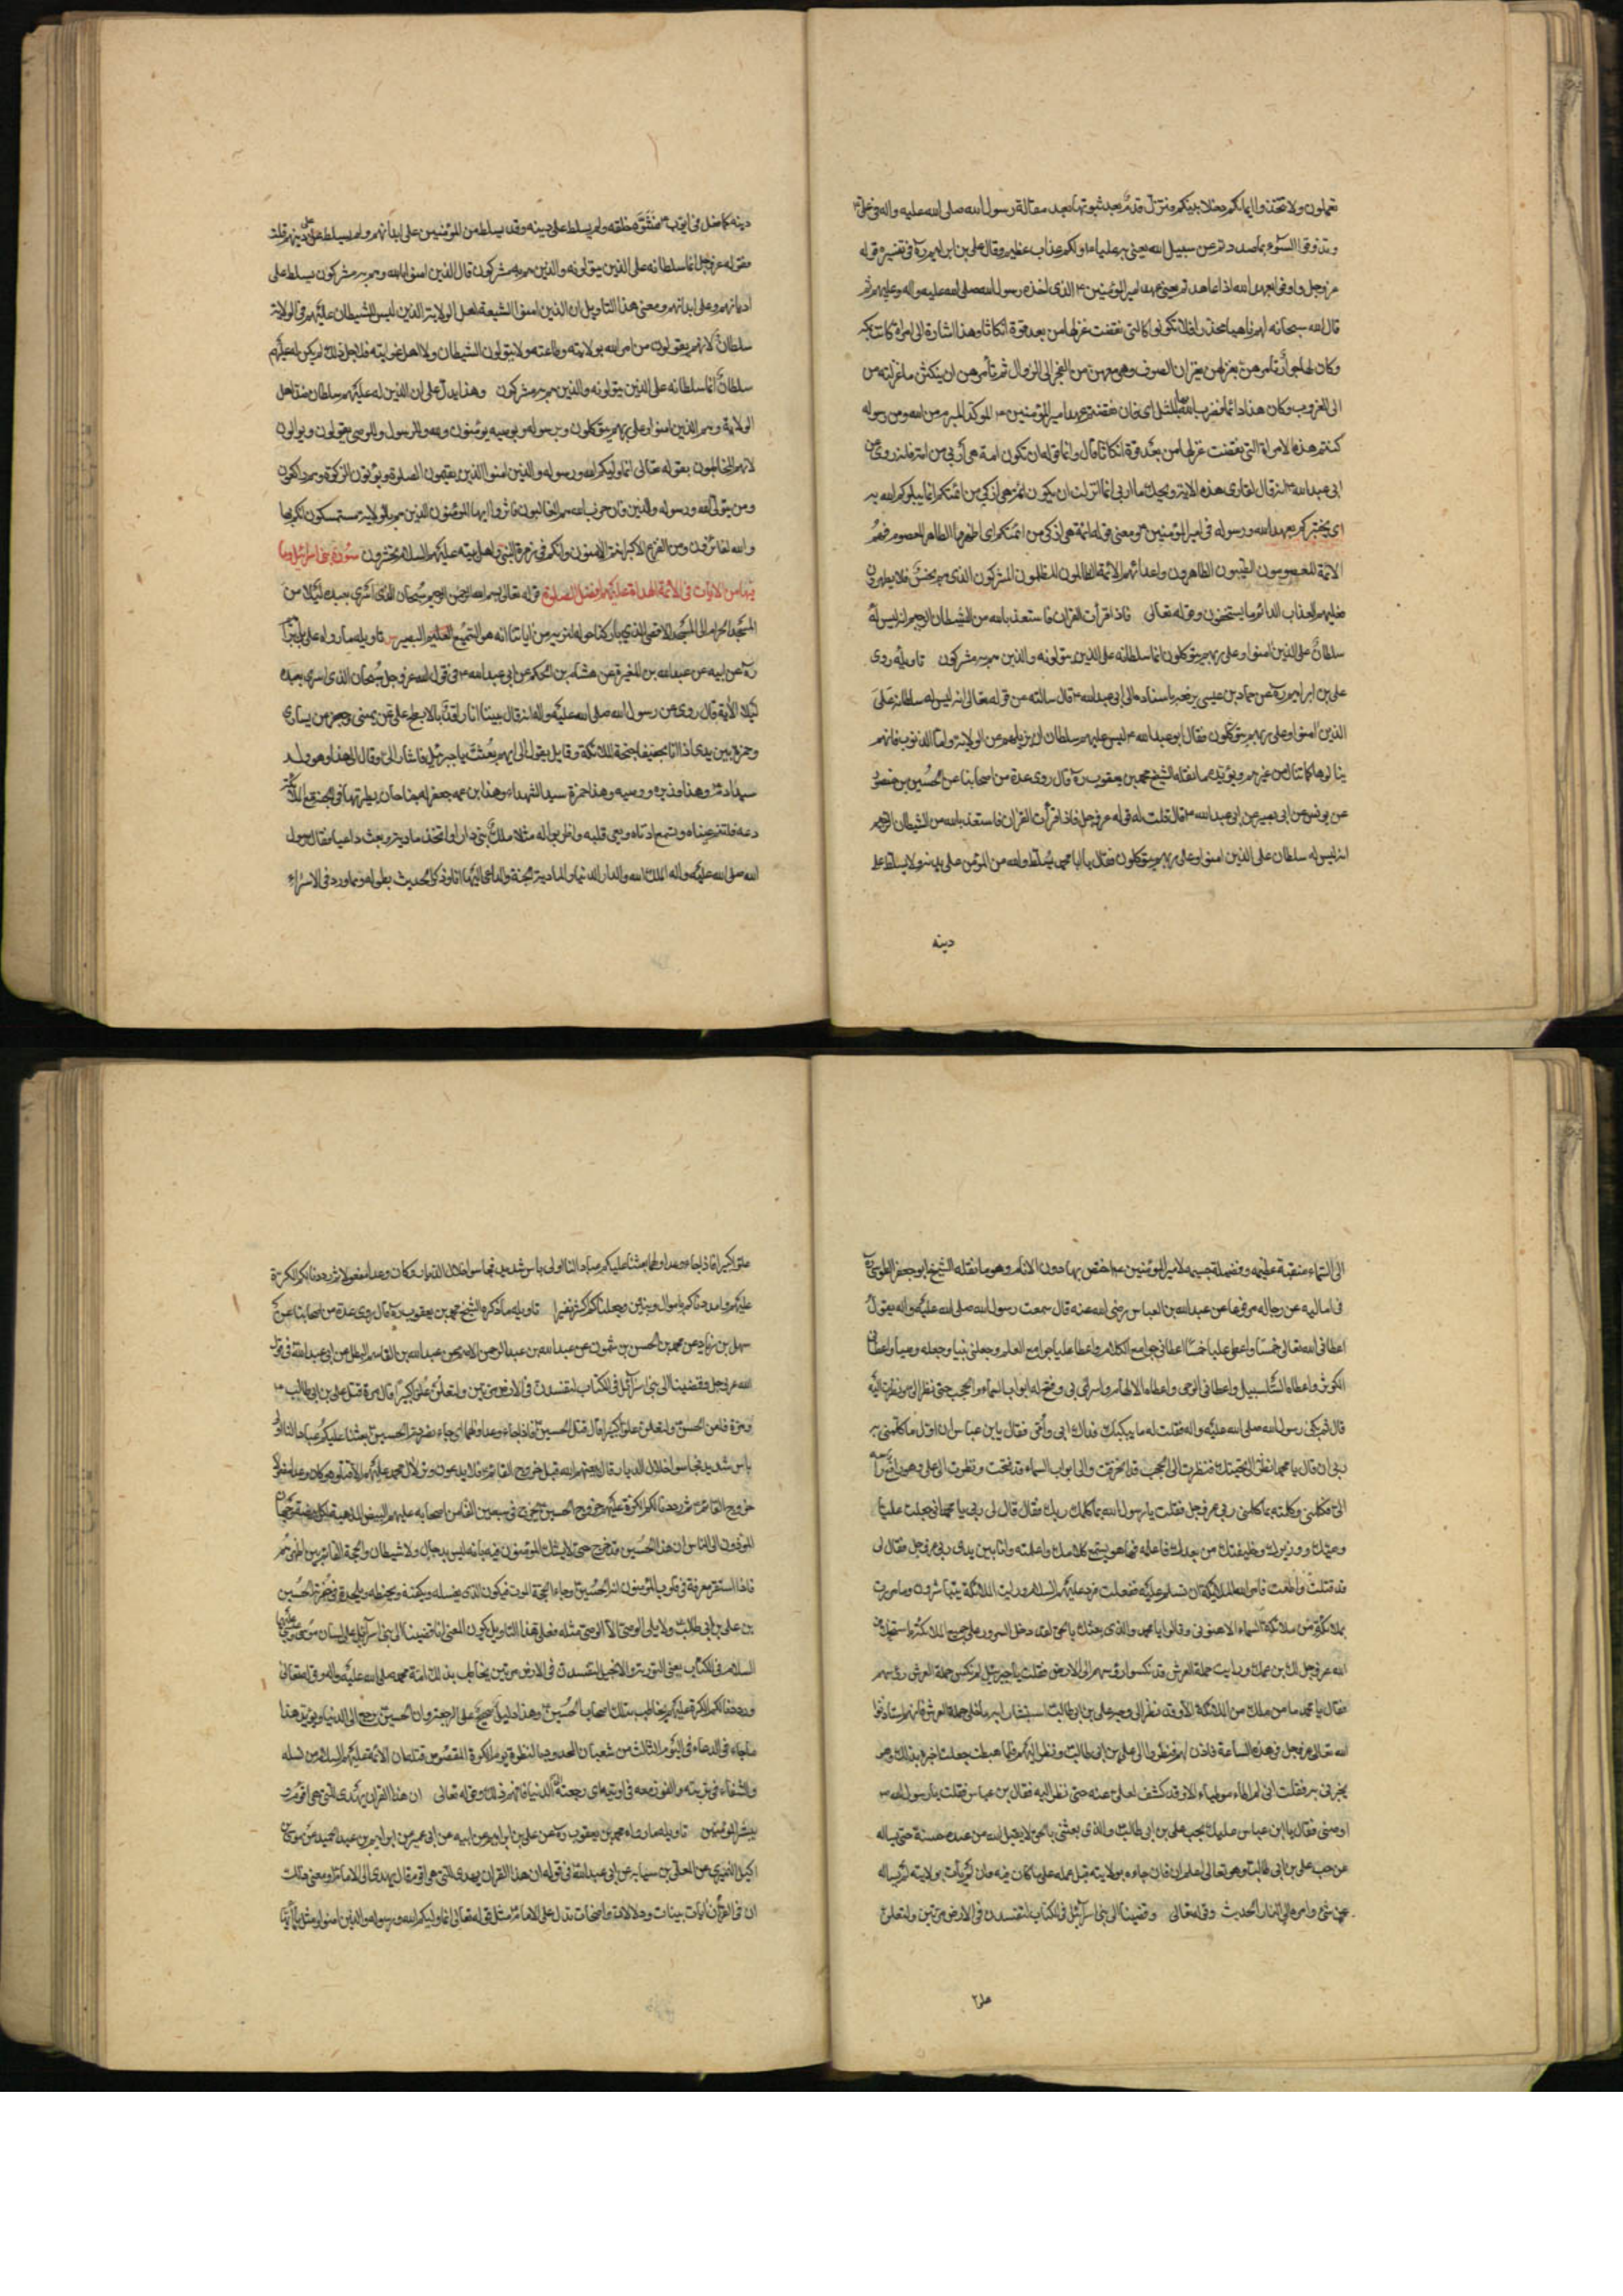 تعملون ولا تتخذوا ايمانكم دخلا بينكم فتزل قدم بعد ثبوتها بعد مقالة رسول الله صلى الله عليه واله فى على
وتذوقوا السوء بما صددتم عن سبيل الله يعنى به عليا ولكم عذاب عظيم وقال على بن ابراهيم ره فى تفسيره قوله
عز وجل واوفوا بعهد الله اذا عاهدتم يعنى عهد امير المؤمنين ع الذى اخذه رسول الله صلى الله عليه واله وعليهم ثم
قال الله سبحانه لهم ناهيا محذرا فلا تكونوا كالتى نقضت غزلها من بعد قوة انكاثا وهذا اشارة الى امراة كانت
وكان لها جوار تامرهن بغزلهن يغزلن الصوف وهى معهن من الفجر الى الزوال ثم تامرهن ان ينكثن ما غزلنه من
الى الغروب وكان هذا دابها فضرب الله بها المثل اى فان نقضتم عهد امير المؤمنين ع الموكد المبرم من الله ومن رسوله
كنتم هذه الامراة التى نقضت غزلها من بعد قوة انكاثا قال وانما قوله ان تكون امة هى اربى من امة فقد روى عن
ابى عبد الله ع انه قال لقارى هذه الاية ويحك ما اربى انما انزلت ان تكون ائمة هى ازكى من ائمتكم انما يبلوكم الله به
اى يختبركم بعهد الله ورسوله فى امير المؤمنين ع ومعنى قوله ائمة هى ازكى من ائمتكم اى اطهر منها الطاهر المعصوم فهم
الائمة المعصومون الطيبون الطاهرون واعدائهم الائمة الظالمون المظلون المشركون الذى
عليهم العذاب الدائم ما يستحقون وقوله تعالى فاذا قرأت القران فاستعذ بالله من الشيطان الرجيم انه ليس له
سلطان على الذين امنوا وعلى ربهم يتوكلون انما سلطانه على الذين يتولونه والذين هم به مشركون تاويله روى
على بن ابراهيم ره عن حماد بن عيسى باسناده الى ابى عبد الله ع قال سالته عن قوله تعالى انه ليس له سلطان على
الذين امنوا وعلى ربهم يتوكلون فقال ابو عبد الله ع ليس عليهم سلطان ان يزيلهم عن الولاية واما الذنوب فانهم
ينالونها كما تنال من غيرهم ويؤيده ما نقله الشيخ محمد بن يعقوب ره قال روى عدة من اصحابنا عن الحسين بن منصور
عن يونس عن ابى بصير عن ابى عبد الله ع قال قلت له قوله عز وجل فاذا قرأت القران فاستعذ بالله من الشيطان الرجيم
انه ليس له سلطان على الذين امنوا وعلى ربهم يتوكلون فقال يا ابا محمد يسلط والله من المؤمن على بدنه ولا يسلط على
دينه
دينه كما فعل فى ايوب ع فشوه خلقه ولم يسلط على دينه وقد يسلط من المؤمنين على ابدانهم ولم يسلط على دينهم قلت
فقوله عز وجل انما سلطانه على الذين يتولونه والذين هم به مشركون قال الذين امنوا بالله وهم به مشركون يسلط على
اديانهم وعلى ابدانهم ومعنى هذا التاويل ان الذين امنوا الشيعة اهل الولاية الذين ليس للشيطان عليهم فى الولاية
سلطان لانهم يقولون من امر الله بولايته وطاعته ولا يتولون الشيطان ولا اهل غوايته فلاجل ذلك لم يكن له عليهم
سلطان انما سلطانه على الذين يتولونه والذين هم به مشركون وهذا يدل على ان الذين له عليهم سلطان ضد اهل
الولاية وهم الذين امنوا وعلى ربهم يتوكلون وبرسوله وبوصيه يؤمنون والله والرسول والوصى يتولون ويوالون
لانهم المخاطبون بقوله تعالى انما وليكم الله ورسوله والذين امنوا الذين يقيمون الصلوة ويؤتون الزكوة وهم راكعون
ومن يتولى الله ورسوله والذين فان حزب الله هم الغالبون فابشروا ايها المؤمنون الذين هم بالولاية مستمسكون انكم بها
والله لفائزون ومن الفزع الاكبر انتم الامنون وانكم فى زمرة النبى واهل بيته عليهم السلام تحشرون سورة بنى اسرائيل وما
فيها من الايات فى الائمة الهداة عليهم افضل الصلوة قوله تعالى بسم الله الرحمن الرحيم سبحان الذى اسرى بعبده ليلا من
المسجد الحرام الى المسجد الاقصى الذى باركنا حوله لنريه من اياتنا انه هو السميع العليم البصير تاويله ما رواه على بن ابراهيم
ره عن ابيه عن عبد الله بن المغيرة عن هشام بن الحكم عن ابى عبد الله ع فى قول الله عز وجل سبحان الذى اسرى بعبده
ليلا الاية قال روى عن رسول الله صلى الله عليه واله انه قال بينا انا راقد بالابطح على عن يمنى وجعفر عن يسارى
وحمزة بين يدى اذا انا بحفيف اجنحة الملائكة وقايل يقول الى ايهم بعثت يا جبرئيل فاشار الى وقال الى هذا وهو ولد
سيد ادم وهذا وزيره ووصيه وهذا حمزة سيد الشهداء وهذا ابن عمه جعفر له جناحان يطير بهما فى الجنة مع الملائكة
دعه فلتنم عيناه وتسمع اذناه ويعى قلبه واضربوا له مثلا ملك بنى دارا واتخذ مادبة وبعث داعيا فقال رسول
الله صلى الله عليه واله الملك الله والدار الدنيا والمادبة الجنة والداعى اليها انا وذكر الحديث بطوله ومما ورد فى الاسراء
الى السماء منقبة عظيمة وفضيلة جسيمة لامير المؤمنين ع اختص بها دون الانام وهو ما نقله الشيخ ابو جعفر الطوسى ره
فى اماليه عن رجاله مرفوعا عن عبد الله بن العباس رضى الله عنه قال سمعت رسول الله صلى الله عليه واله يقول
اعطانى الله تعالى خمسا واعطى عليا خمسا اعطانى جوامع الكلام واعطى عليا جوامع العلم وجعلنى نبيا وجعله وصيا واعطانى
الكوثر واعطاه السلسبيل واعطانى الوحى واعطاه الالهام واسرى بى وفتح له ابواب السماء والحجب حتى نظر الى ونظرت اليه
قال ثم بكى رسول الله صلى الله عليه واله فقلت له ما يبكيك فداك ابى وامى فقال يا بن عباس ان اول ما كلمنى به
ربى ان قال يا محمد انظر الى تحتك فنظرت الى الحجب قد انخرقت والى ابواب السماء قد فتحت ونظرت الى على وهو رافع راسه
الى فكلمنى وكلمته بما كلمنى ربى عز وجل فقلت يا رسول الله بما كلمك ربك فقال قال لى ربى يا محمد انى جعلت عليا
وصيك ووزيرك وخليفتك من بعدك فاعلمه فها هو يسمع كلامك واعلمته وانا بين يدى ربى عز وجل فقال لى
قد قبلت واطعت فامر الله الملائكة ان تسلم عليه ففعلت فرد عليهم السلام ورايت الملائكة يتباشرون وما مررت
بملائكة من ملائكة السماء الا هنونى وقالوا يا محمد والذى بعثك بالحق لقد دخل السرور على جميع الملائكة باستخلاف
الله عز وجل لك بن عمك ورايت حملة العرش قد نكسوا رؤسهم الى الارض فقلت يا جبرئيل لم نكس حملة العرش رؤسهم
فقال يا محمد ما من ملك من الملائكة الا وقد نظر الى وجه على بن ابى طالب استبشارا به ما خلا حملة العرش فانهم استاذنوا
الله تعالى عز وجل فى هذه الساعة فاذن لهم فنظروا الى على بن ابى طالب ونظر اليهم فلما هبطت جعلت اخبره بذلك وهو
يخبرنى به فقلت انى لم اطاء موطئا الا وقد كشف لعلى عنه حتى نظر اليه فقال بن عباس فقلت يا رسول الله
اوصنى فقال يا ابن عباس عليك بحب على بن ابى طالب والذى بعثنى بالحق لا يقبل الله من عبد حسنة حتى يساله
عن حب على بن ابى طالب وهو تعالى اعلم ان فان جاءه بولايته قبل عمله على ما كان فيه وان لم يات بولايته لم يساله
عن شئ وامر به الى النار الحديث وقوله تعالى وقضينا الى بنى اسرائيل فى الكتاب لتفسدن فى الارض مرتين ولتعلن
علوا
علوا كبيرا فاذا جاء وعد اولهما بعثنا عليكم عبادا لنا اولى باس شديد فجاسوا خلال الديار وكان وعدا مفعولا ثم رددنا لكم الكرة
عليهم وامددناكم باموال وبنين وجعلناكم اكثر نفيرا تاويله ما ذكره الشيخ محمد بن يعقوب ره قال روى عدة من اصحابنا عن
سهل بن زياد عن محمد بن الحسن بن شمون عن عبد الله بن عبد الرحمن الاصم عن عبد الله بن القاسم البطل عن ابى عبد الله ع فى قول
الله عز وجل وقضينا الى بنى اسرائيل فى الكتاب لتفسدن فى الارض مرتين ولتعلن علوا كبيرا قال مرة قتل على بن ابى طالب ع
ومرة طعن الحسن ولتعلن علوا كبيرا قال قتل الحسين ع فاذا جاء وعد اولهما اى جاء نصر دم الحسين بعثنا عليكم عبادا لنا اولى
باس شديد فجاسوا خلال الديار قال يبعثهم الله قبل خروج القائم ع فلا يدعون وترا لال محمد عليهم السلام الا قتلوه وكان وعدا مفعولا
خروج القائم ع ثم رددنا لكم الكرة عليهم خروج الحسين ع يخرج فى سبعين الفا من اصحابه عليهم البيض المذهبة لكل بيضة وجهان
المؤدون الى الناس ان هذا الحسين قد خرج حتى لا يشك المؤمنون فيه بانه ليس بدجال ولا شيطان والحجة القائم بين اظهرهم
فاذا استقر معرفة فى قلوب المؤمنون انه الحسين ع وجاء الحجة الموت فيكون الذى يغسله ويكفنه ويحنطه ويلحده فى حفرته الحسين
بن على بن ابى طالب ع ولا يلى الوصى الا الوصى مثله فعلى هذا التاويل يكون المعنى انا قضينا الى بنى اسرائيل على لسان موسى وعيسى عليهما
السلام فى الكتاب يعنى التورية والانجيل لتفسدن فى الارض مرتين يخاطب بذلك امة محمد صلى الله عليه واله وقوله تعالى
ورددنا لكم الكرة عليهم يخاطب بذلك اصحاب الحسين ع وهذا دليل صحيح على الرجعة وان الحسين ع يرجع الى الدنيا ويؤيد هذا
ما جاء فى الدعاء فى اليوم الثالث من شعبان الممدود بالنصرة يوم الكرة المعوض من قتله ان الائمة عليهم السلام من نسله
والشفاء فى تربته والفوز معه فى اوبته اى رجعته الى الدنيا فافهم ذلك وقوله تعالى ان هذا القران يهدى للتى هى اقوم
يبشر المؤمنين تاويله ما رواه محمد بن يعقوب ره عن على بن ابراهيم عن ابيه عن ابن ابى عمير عن ابراهيم بن عبد الحميد عن موسى بن
اكيل النميرى عن العلا بن سيابه عن ابى عبد الله ع فى قوله ان هذا القران يهدى للتى هى اقوم قال يهدى الى الامام ومعنى
ان فى القرأن ايات بينات ودلالات واضحات تدل على الامام مثل قوله تعالى انما وليكم الله ورسوله والذين امنوا ومثل